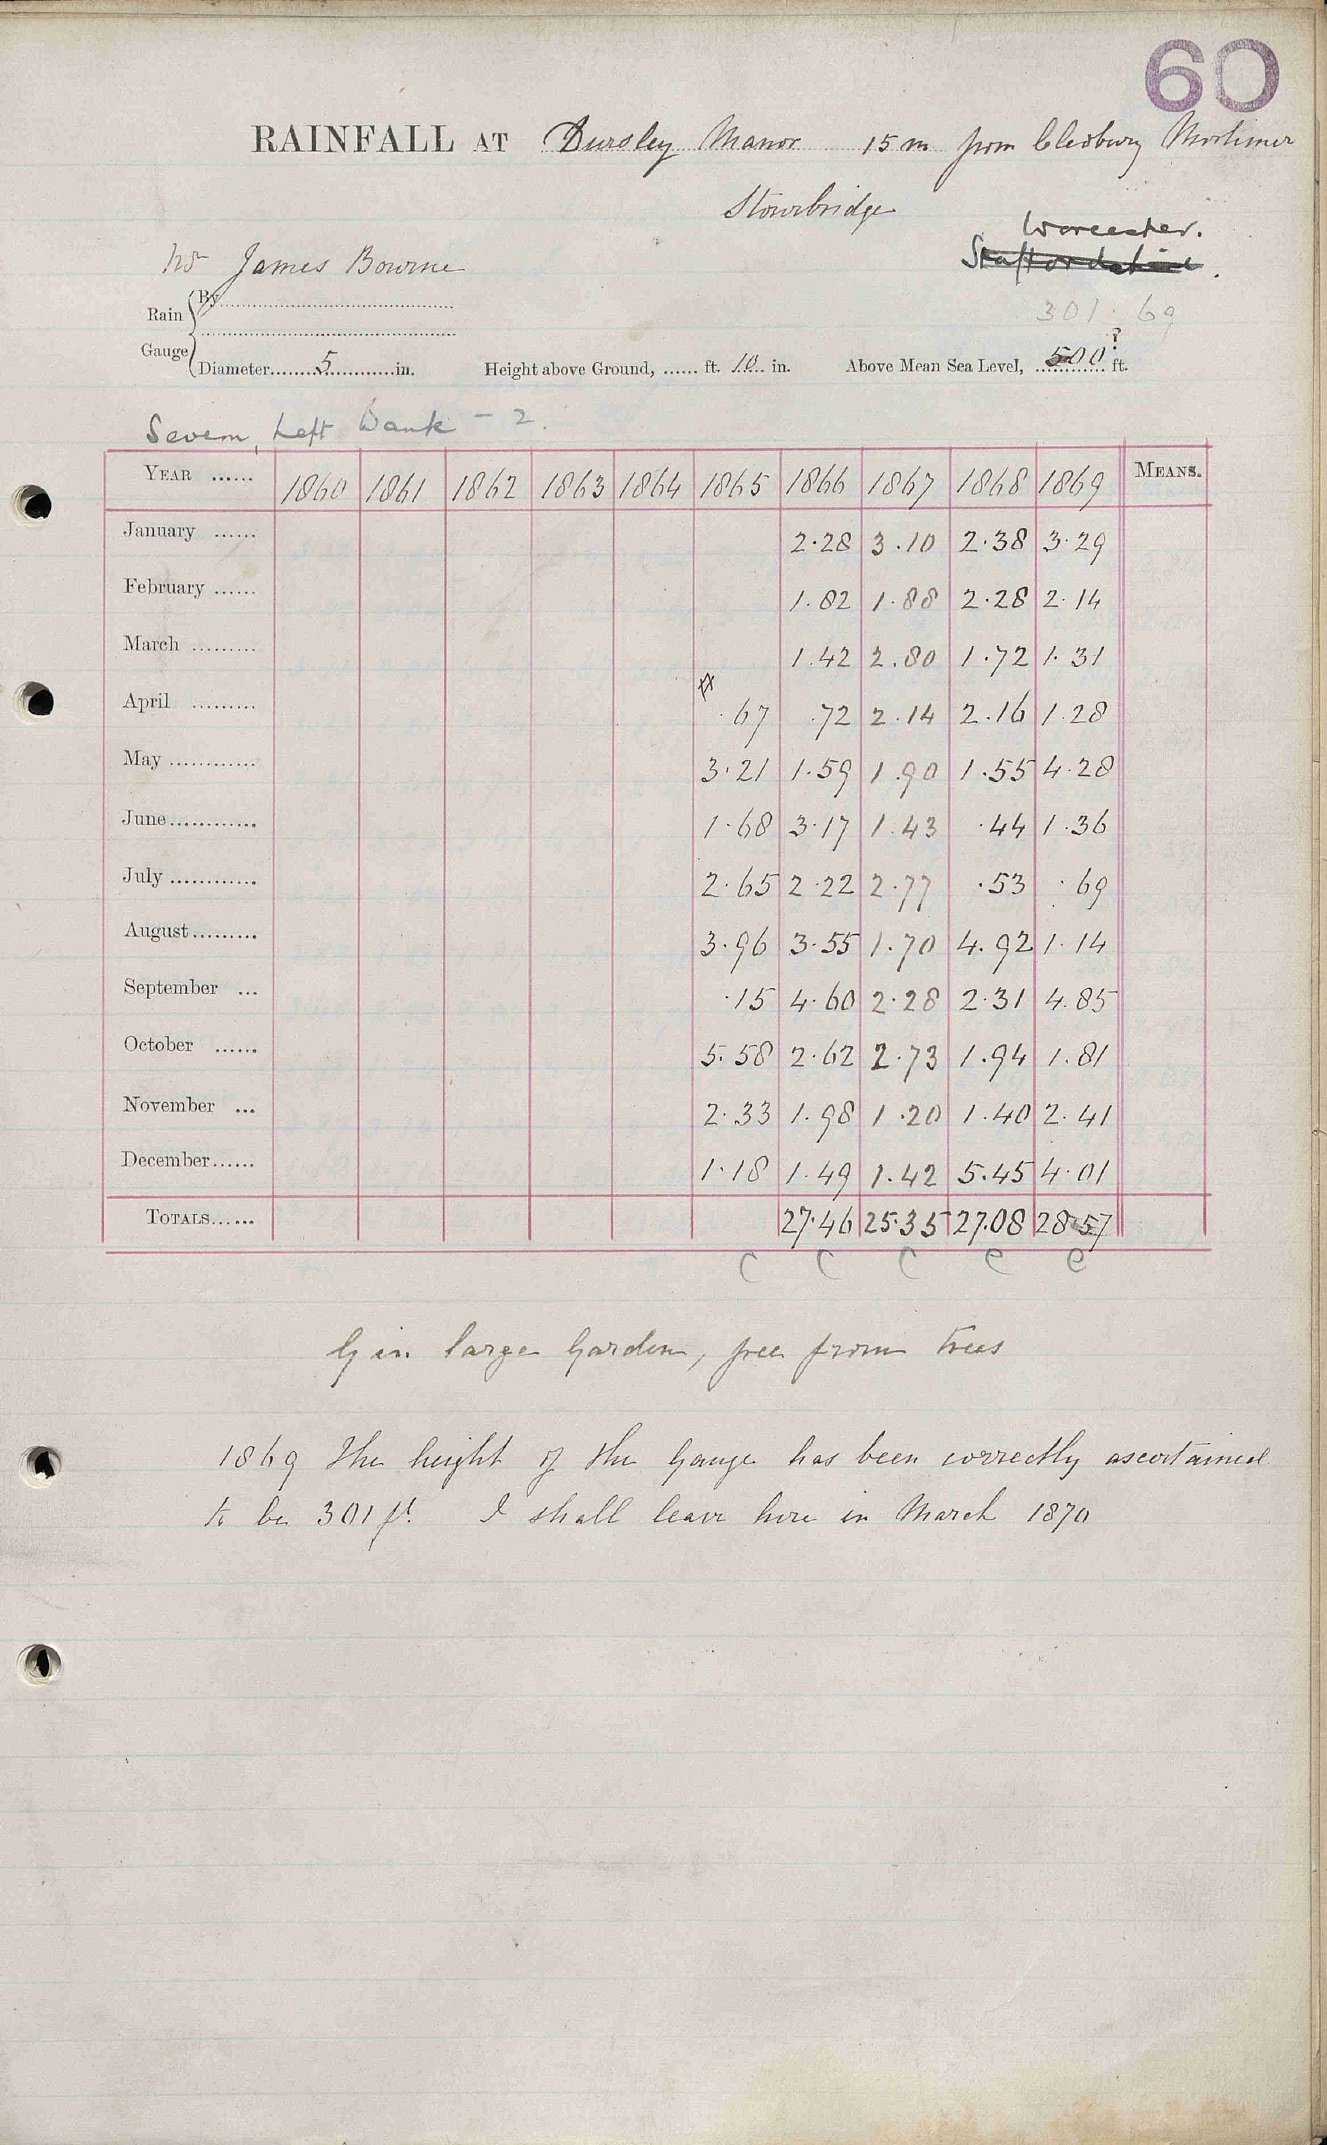 60
RAINFALL AT Dursley Manor 15 m from Cleobury Mortimer
Stourbridge
Worcester.
Staffordshire.
Mr James Bourne
301 · 69
Rain Gauge { By
Diameter 5 in. Height above Ground, ft. 10 in. Above Mean Sea Level, 500 ? ft.
Severn, Left Bank - 2.
YEAR 1860 1861 1862 1863 1864 1865 1866 1867 1868 1869 MEANS.
January 2.28 3.10 2.38 3.29
February 1.82 1.88 2.28 2.14
March 1.42 2.80 1.72 1.31
April .67 .72 2.14 2.16 1.28
May 3.21 1.59 1.90 1.55 4.28
June 1.68 3.17 1.43 .44 1.36
July 2.65 2.22 2.77 .53 .69
August 3.96 3.55 1.70 4.92 1.14
September .15 4.60 2.28 2.31 4.85
October 5.58 2.62 2.73 1.94 1.81
November 2.33 1.98 1.20 1.40 2.41
December 1.18 1.49 1.42 5.45 4.01
TOTALS 27.46 25.35 27.08 28.57
C C C C C
G in large Garden, free from trees
1869 The height of the Gauge has been correctly ascertained
to be 301 ft. I shall leave here in March 1870